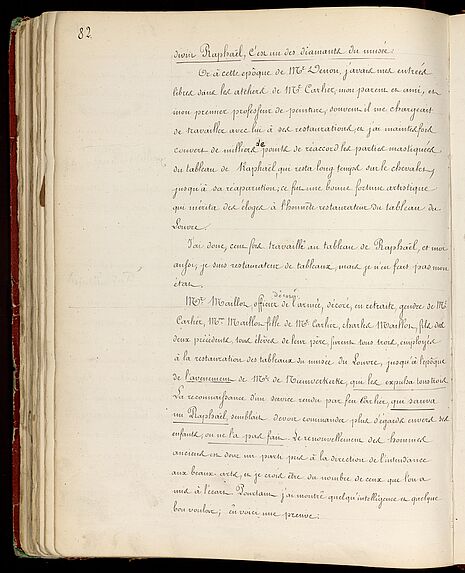 82
divin Raphaël, C'est un des diamants du musée.
Or à cette époque de Mr Denon, j'avais mes entrées
libres dans les ateliers de Mr Carlier, mon parent et ami, et
mon premier professeur de peinture, souvent il me chargeait
de travailler avec lui à ses restaurations, et j'ai maintes fois
couvert de milliers de points de réaccord les parties mastiquées
du tableau de Raphaël, qui resta long temps sur le chevalet,
jusqu'à sa réapparution; ce fut une bonne fortune artistique
qui mérita des éloges à l'homme restaurateur du tableau du
Louvre.
J'ai donc, cent fois travaillé au tableau de Raphaël, et moi
aussi, je suis restaurateur de tableaux, mais je n'en fais pas mon
état.
Mr Maillon officier de l'armée, décoré, en retraite, gendre de Mr
Carlier, Mme Maillon fille de Mr Carlier, charles Maillon, fils des
deux précédents, tous élèves de leur père, furent tous trois, employés
à la restauration des tableaux du musée du Louvre, jusqu'à l'époque
de l'avènement de Mr de Nieuwerkerke, qui les expulsa tous trois.
La reconnaissance d'un service rendu par feu Carlier, qui sauva
un Raphaël, semblait devoir commander plus d'égards envers ses
enfants, on ne l'a pas fait. Le renouvellement des hommes
anciens est donc un parti pris à la direction de l'intendance
aux beaux arts, et je crois être du nombre de ceux que l'on a
mis à l'écart. Pourtant j'ai montré quelqu'intelligence et quelque
bon vouloir; en voici une preuve: